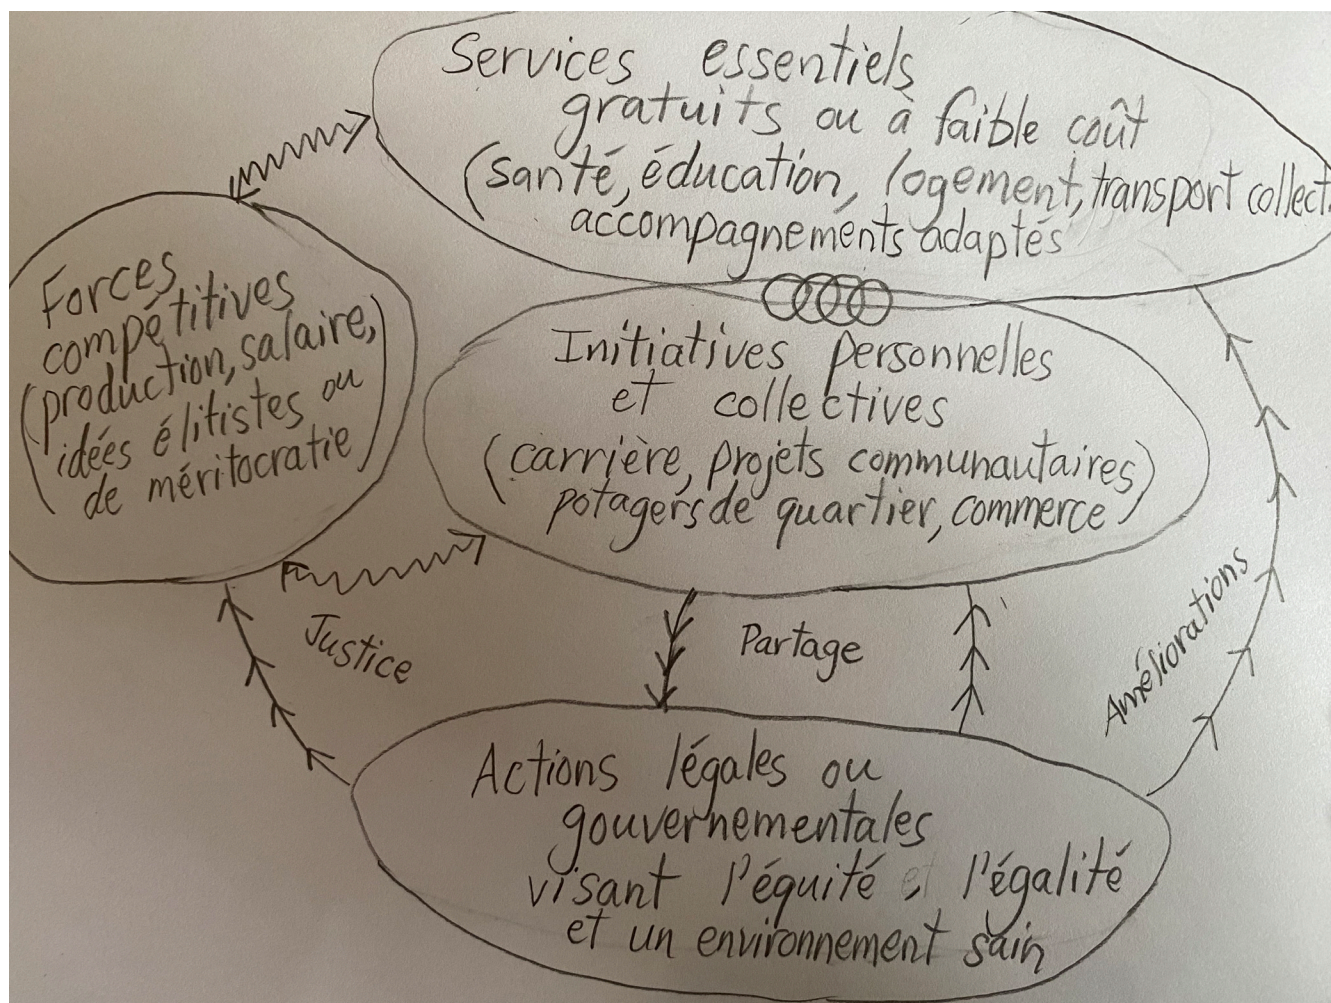 Services essentiels
gratuits ou à faible coût
(santé, éducation, logement, transport collect
accompagnements adaptés
Forces
compétitives
(production, salaire,
idées élitistes ou
de méritocratie)
Initiatives personnelles
et collectives
(carrière, projets communautaires)
potagers de quartier, commerce
Justice
Partage
Améliorations
Actions légales ou
gouvernementales
visant l'équité, l'égalité
et un environnement sain